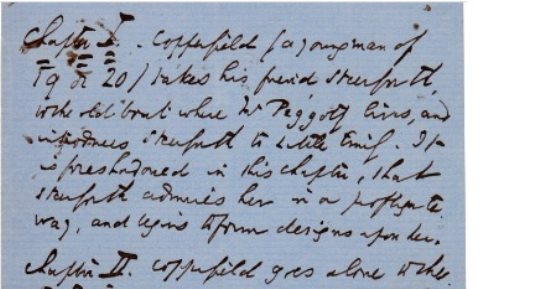 Chapter I. Copperfield (a young man of
19 or 20) takes his friend Steerforth
to the old boat where Mr Peggotty lives, and
introduces Steerforth to Little Emily. It
is foreshadowed in this chapter, that
Steerforth admires her in a profligate
way, and begins to form designs upon her.
Chapter II. Copperfield goes alone to the